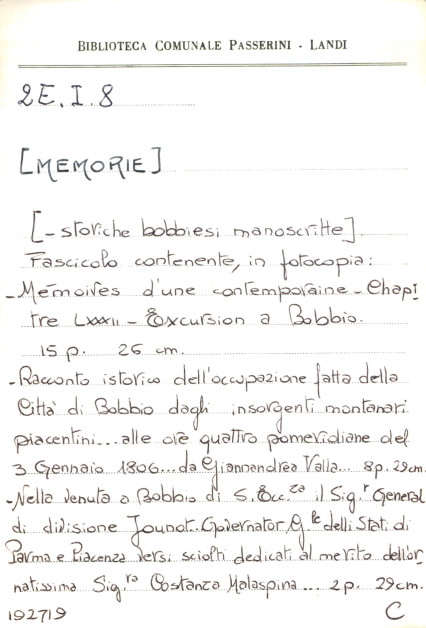 BIBLIOTECA COMUNALE PASSERINI - LANDI
2E.I.8
[MEMORIE]
[- storiche bobbiesi manoscritte].
Fascicolo contenente, in fotocopia:
- Mémoires d'une contemporaine - Chapi
tre LXXXII - Excursion a Bobbio.
15 p. 26 cm.
- Racconto istorico dell'occupazione fatta della
Città di Bobbio dagli insorgenti montanari
piacentini... alle ore quattro pomeridiane del
3 Gennaio 1806... da Giannandrea Valla... 8p. 29cm.
- Nella venuta a Bobbio di S. Ecc.za il Sig.r General
di divisione Jounot.. Governator G.le delli Stati di
Parma e Piacenza versi sciolti dedicati al merito dell'or
natissima Sig.ra Costanza Malaspina... 2p. 29cm.
192719 C